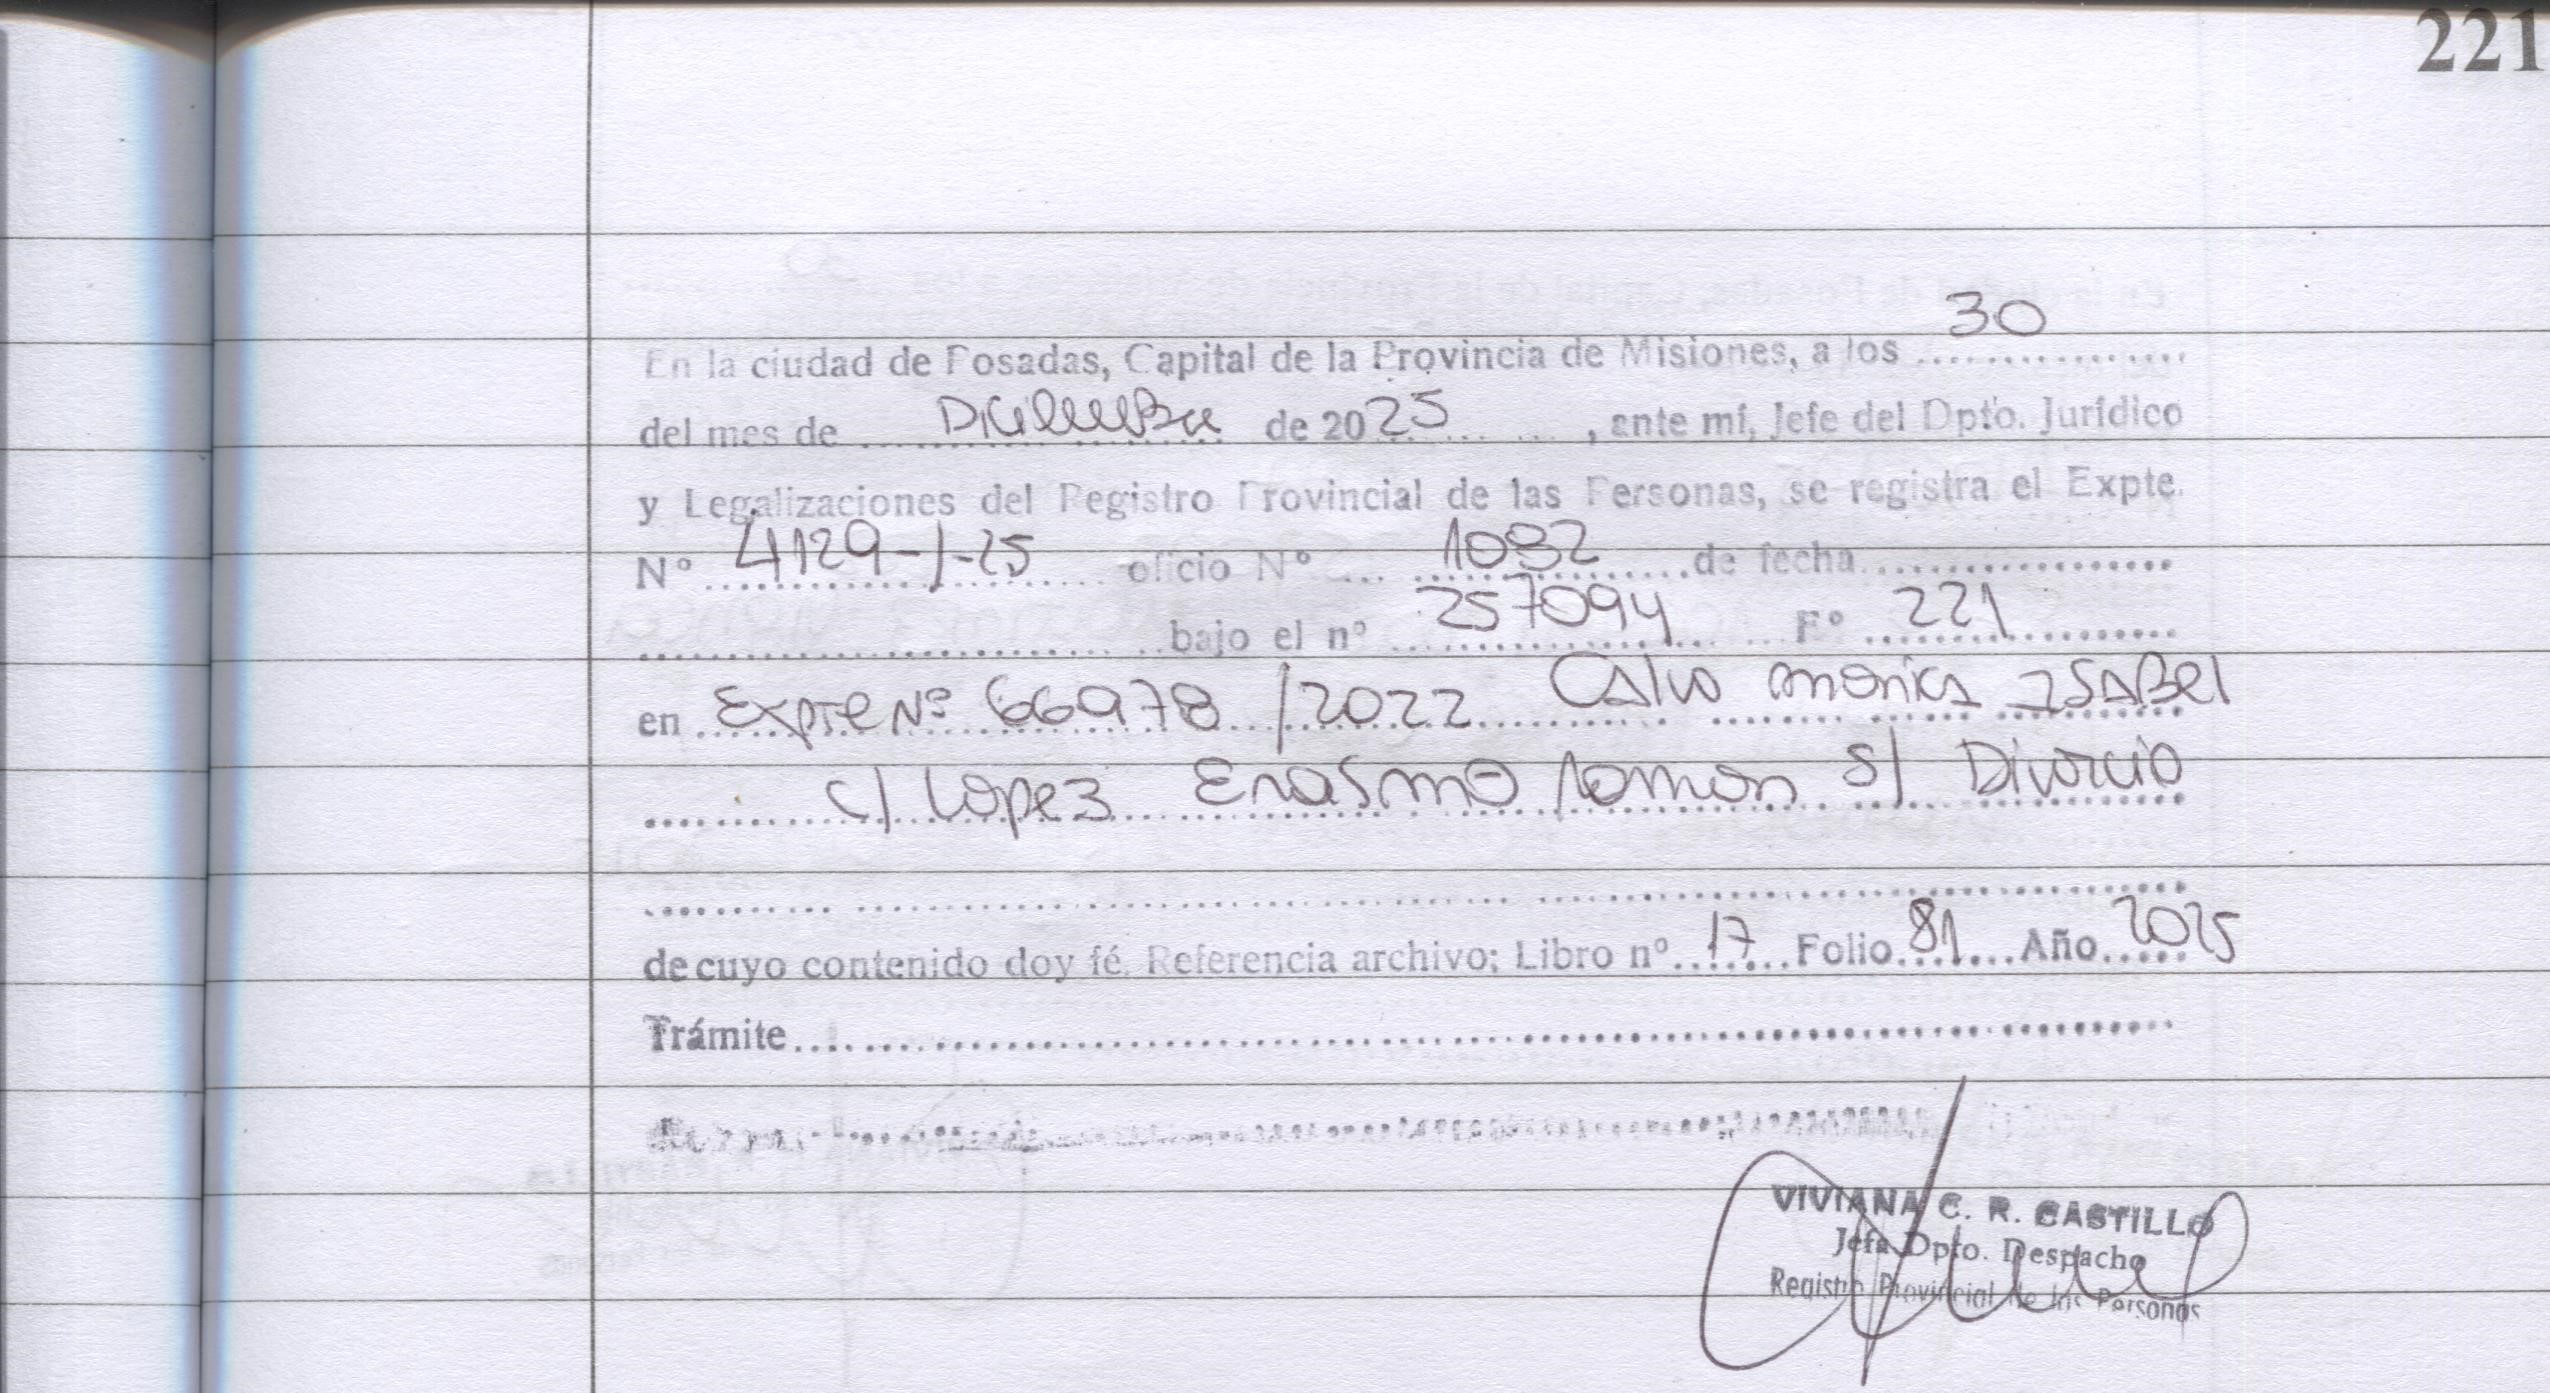 221
En la ciudad de Posadas, Capital de la Provincia de Misiones, a los 30
del mes de Diciembre de 2025, ante mí, Jefe del Dpto. Jurídico
y Legalizaciones del Registro Provincial de las Personas, se registra el Expte.
Nº 4129-J-25 oficio Nº 1092 de fecha
bajo el nº 257094 Fº 221
en Expte Nº 66978/2022 Calvo monica ISABel
c/ Lopez Erasmo Ramon s/ Divorcio
de cuyo contenido doy fé. Referencia archivo; Libro nº 17 Folio 81 Año 2025
Trámite
VIVIANA C. R. CASTILLO
Jefa Dpto. Despacho
Registro Provincial de las Personas